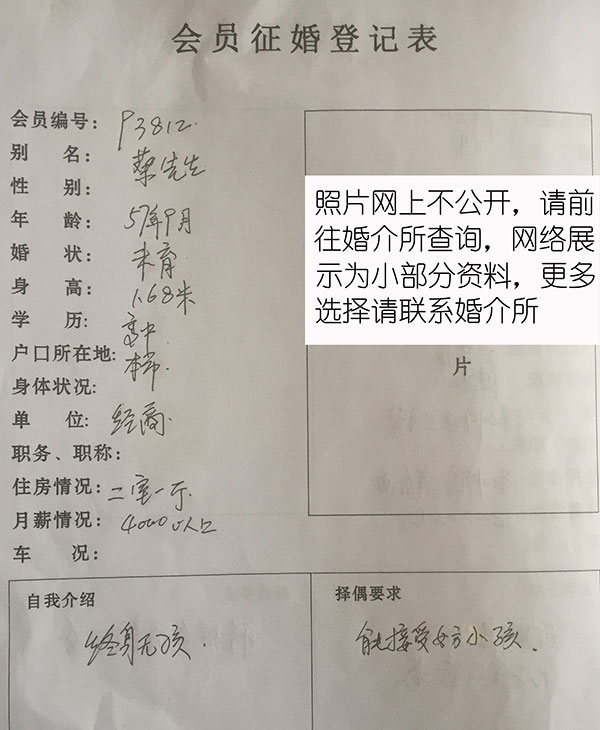 会员征婚登记表
会员编号: P3812.
别 名: 蔡先生
性 别:
年 龄: 57年9月
婚 状: 未育
身 高: 1.68米
学 历: 高中
户口所在地: 本市
身体状况:
单 位: 经商.
职务、职称:
住房情况: 二室一厅
月薪情况: 4000以上
车 况:
照片网上不公开，请前
往婚介所查询，网络展
示为小部分资料，更多
选择请联系婚介所
片
自我介绍
终身无孩.
择偶要求
能接受女方小孩.